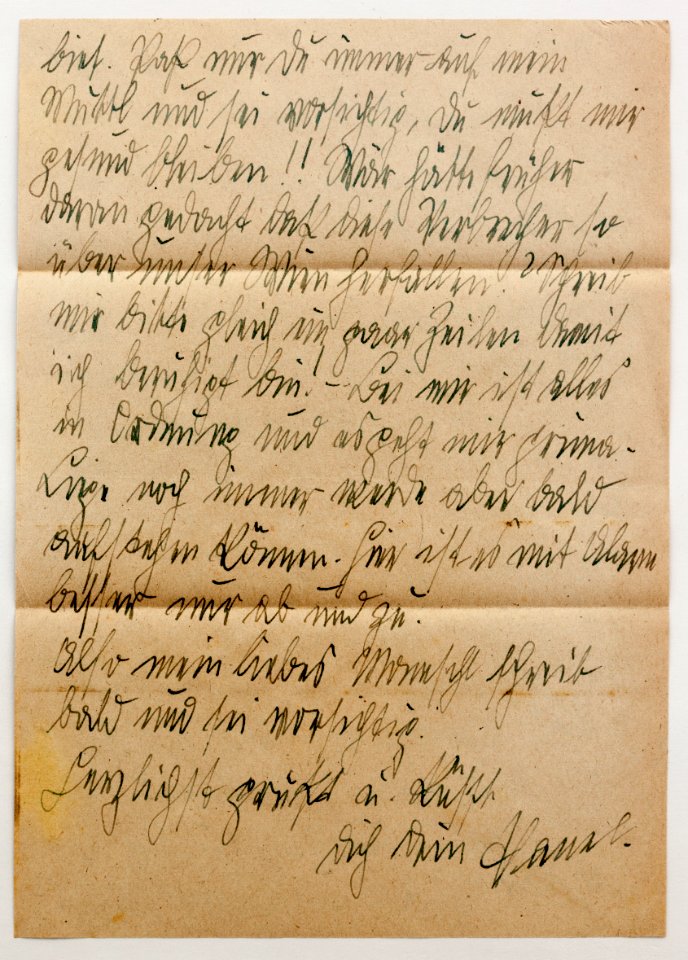 bist. Paß nur du immer auf mein
Muttl und sei vorsichtig, du mußt mir
gesund bleiben!! Wär hätte früher
daran gedacht daß diese Verbrecher so
über unser Wien herfallen? Schreib
mir bitte gleich ein paar Zeilen damit
ich beruhigt bin! - Bei mir ist alles
in Ordnung und es geht mir prima.
Liege noch immer werde aber bald
aufstehen können. Hier ist es mit Alarm
besser nur ab und zu.
Also mein liebes schreib
bald und sei vorsichtig.
Herzlichst grüßt u. küßt
dich dein